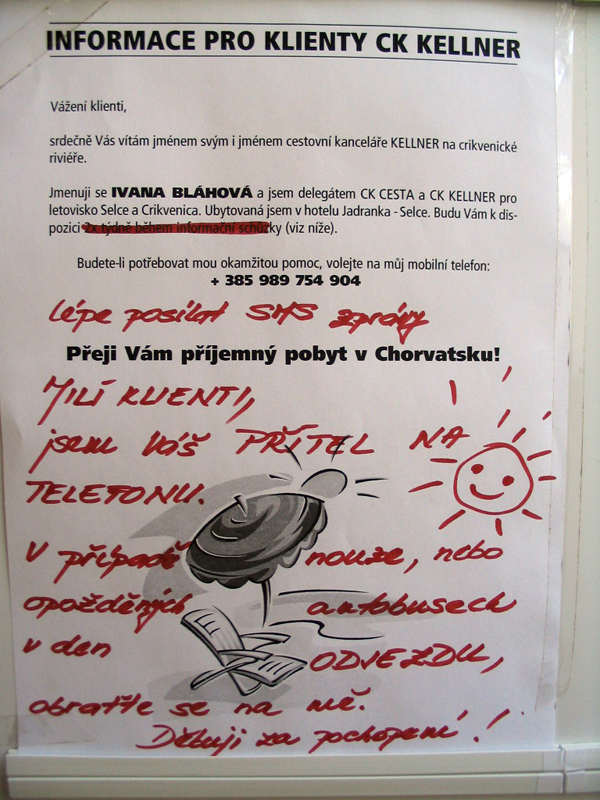 INFORMACE PRO KLIENTY CK KELLNER
Vážení klienti,
srdečně Vás vítám jménem svým i jménem cestovní kanceláře KELLNER na crikvenické
riviéře.
Jmenuji se IVANA BLÁHOVÁ a jsem delegátem CK CESTA a CK KELLNER pro
letovisko Selce a Crikvenica. Ubytovaná jsem v hotelu Jadranka - Selce. Budu Vám k dis-
pozici 2x týdně během informační schůzky (viz níže).
Budete-li potřebovat mou okamžitou pomoc, volejte na můj mobilní telefon:
+ 385 989 754 904
lépe posílat SMS zprávy
Přeji Vám příjemný pobyt v Chorvatsku!
MILÍ KLIENTI,
jsem Váš PŘÍTEL NA
TELEFONU.
V případě nouze, nebo
opožděných autobusech
v den ODJEZDU,
obraťte se na mě.
Děkuji za pochopení!